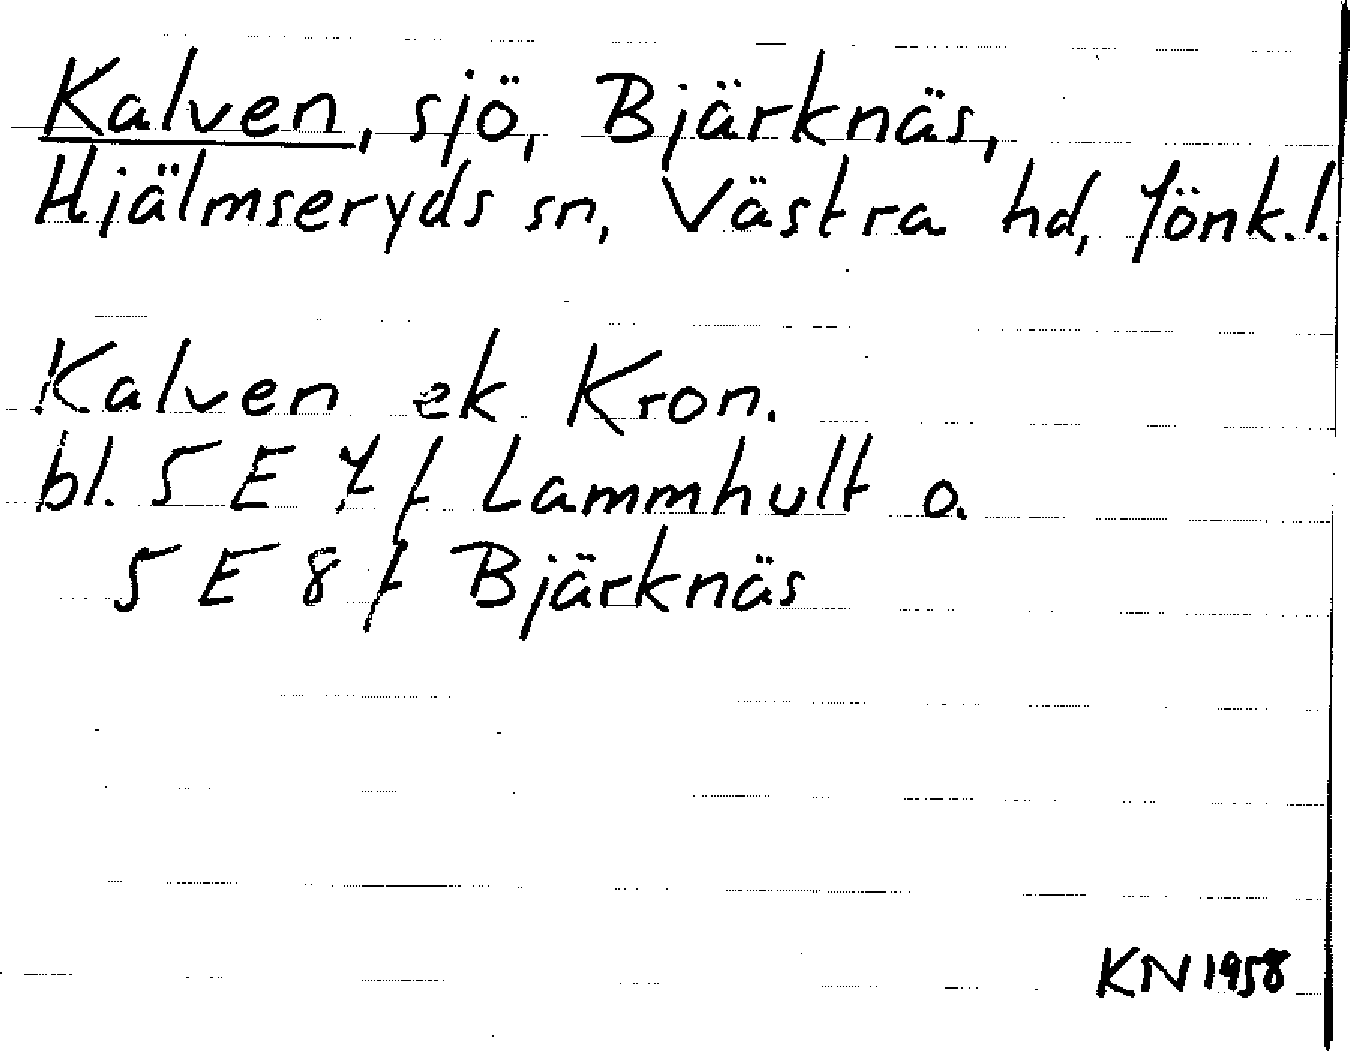 Kalven, sjö, Bjärknäs,
Hjälmseryds sn, Västra hd, Jönk.l.
Kalven ek Kron.
bl. 5 E 7 f Lammhult o.
5 E 8 f Bjärknäs
KN 1958